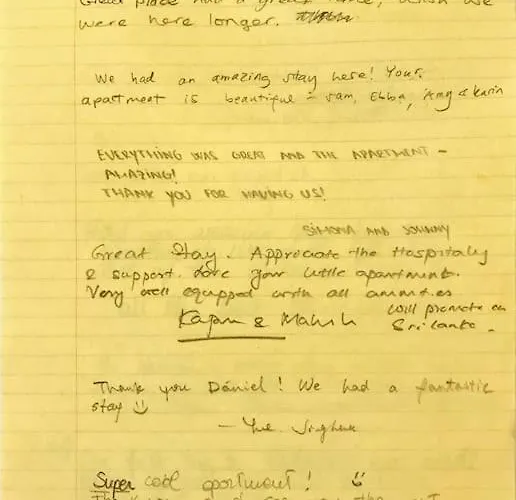 Great place had a great time, wish we
were here longer.
We had an amazing stay here! Your
apartment is beautiful - Sam, Ebba, Amy & Karin
EVERYTHING WAS GREAT AND THE APARTMENT -
AMAZING!
THANK YOU FOR HAVING US!
SIMONA AND JOHNNY
Great Stay. Appreciate the Hospitaliy
& support. Love your little apartment.
Very well equpped with all amnities
will promote in
Kajan & Mahish
Sri Lanka.
Thank you Dániel! We had a fantastic
stay ☺
- The
Super cool apartment! ☺